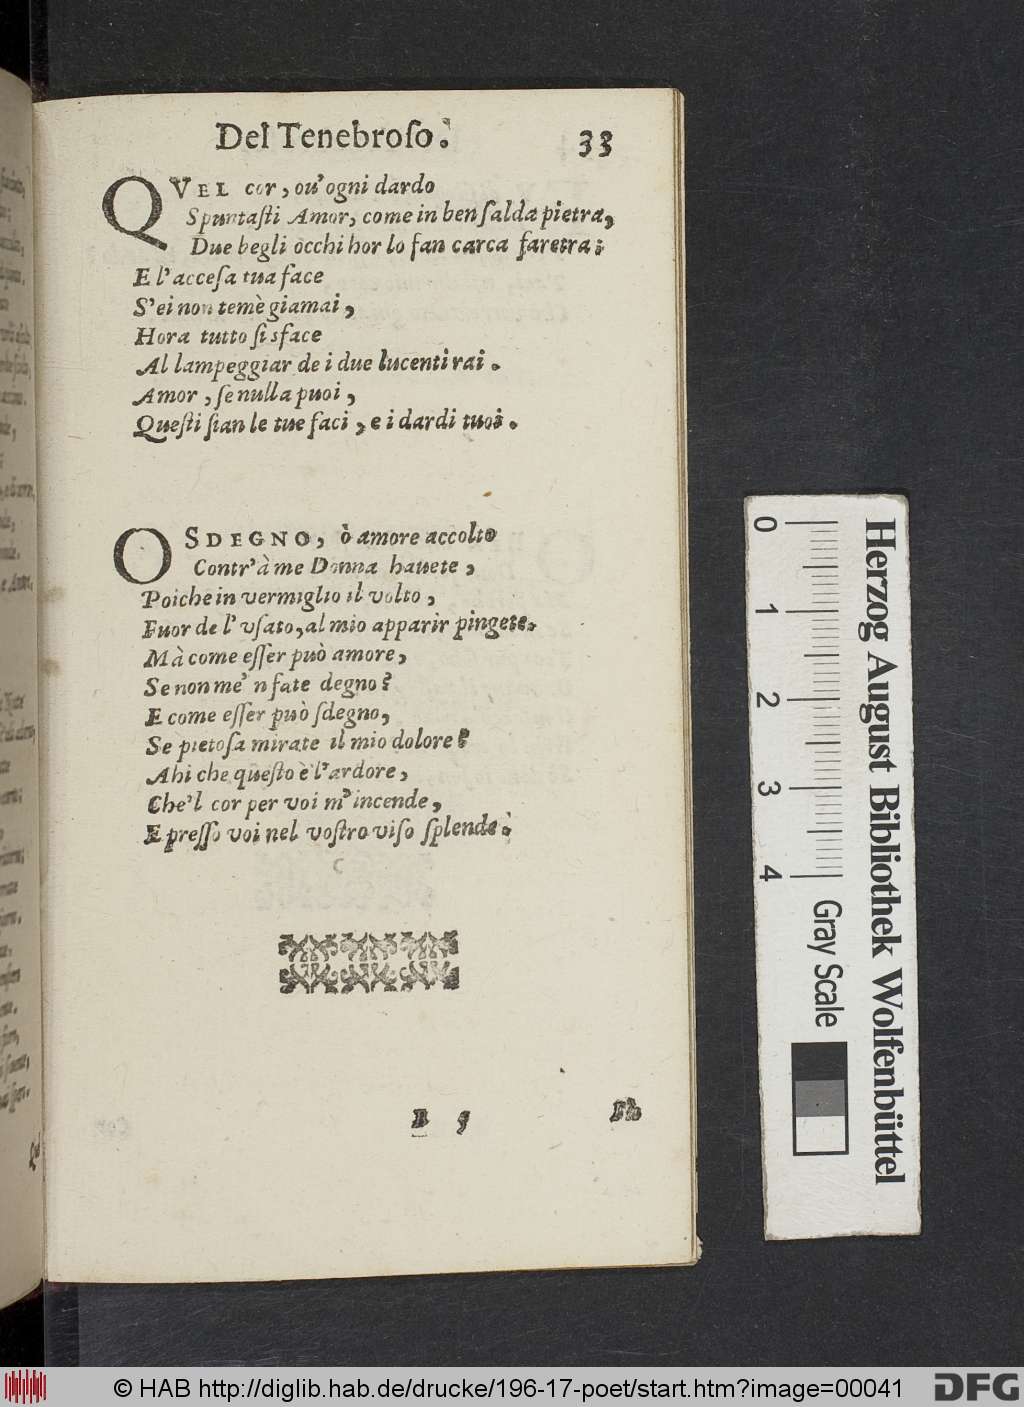 Del Tenebroſo.
33
QVEL cor, ou' ogni dardo
Spuntaſti Amor, come in ben ſalda pietra,
Due begli occhi hor lo fan carca faretra;
E l'acceſa tua face
S'ei non temè giamai,
Hora tutto ſi sface
Al lampeggiar de i due lucenti rai.
Amor, ſe nulla puoi,
Queſti ſian le tue faci, e i dardi tuoi.
O SDEGNO, ò amore accolto
Contr'à me Donna hauete,
Poiche in vermiglio il volto,
Fuor de l'vſato, al mio apparir pingete.
Mà come eſſer può amore,
Se non me'n fate degno?
E come eſſer può ſdegno,
Se pietoſa mirate il mio dolore?
Ahi che queſto è l'ardore,
Che'l cor per voi m'incende,
E preſſo voi nel voſtro viſo ſplende.
B 5
Herzog August Bibliothek Wolfenbüttel
0 1 2 3 4 Gray Scale
© HAB http://diglib.hab.de/drucke/196-17-poet/start.htm?image=00041
DFG